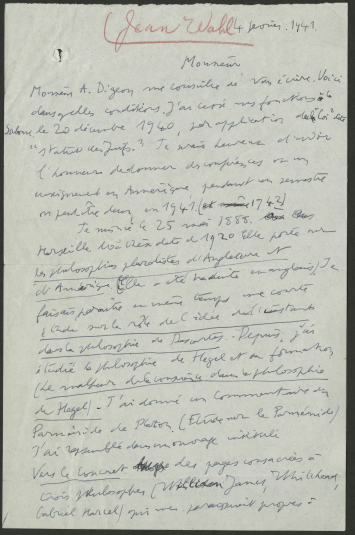 (Jean Wahl
4 février. 1941.
Monsieur
Monsieur A. Digeon me conseille de vous écrire. Voici
dans quelles conditions. J'ai cessé mes fonctions à la
Sorbonne le 20 décembre 1940, par application de la "loi" du
"statut des Juifs." Je serais heureux d'avoir
l'honneur de donner des conférences ou un
enseignement en Amérique pendant un semestre
ou peut-être deux, en 1941 1942)
Je suis né le 25 mai 1888.
Marseille. Ma thèse date de 1920 Elle porte sur
les philosophies pluralistes d'Angleterre et
d'Amérique (Elle a été traduite en anglais) Je
faisais paraître en même temps une courte
étude sur le rôle de l'idée de l'instant
dans la philosophie de Descartes. - Depuis, j'ai
étudié la philosophie de Hegel et sa formation
(Le malheur de la conscience dans la philosophie
de Hegel) - J'ai donné un commentaire du
Parménide de Platon. (Etude sur le Parménide)
J'ai rassemblé dans un ouvrage intitulé
Vers le concret des pages consacrées à
trois philosophes (William James, Whitehead,
Gabriel Marcel) qui me paraissent propres à